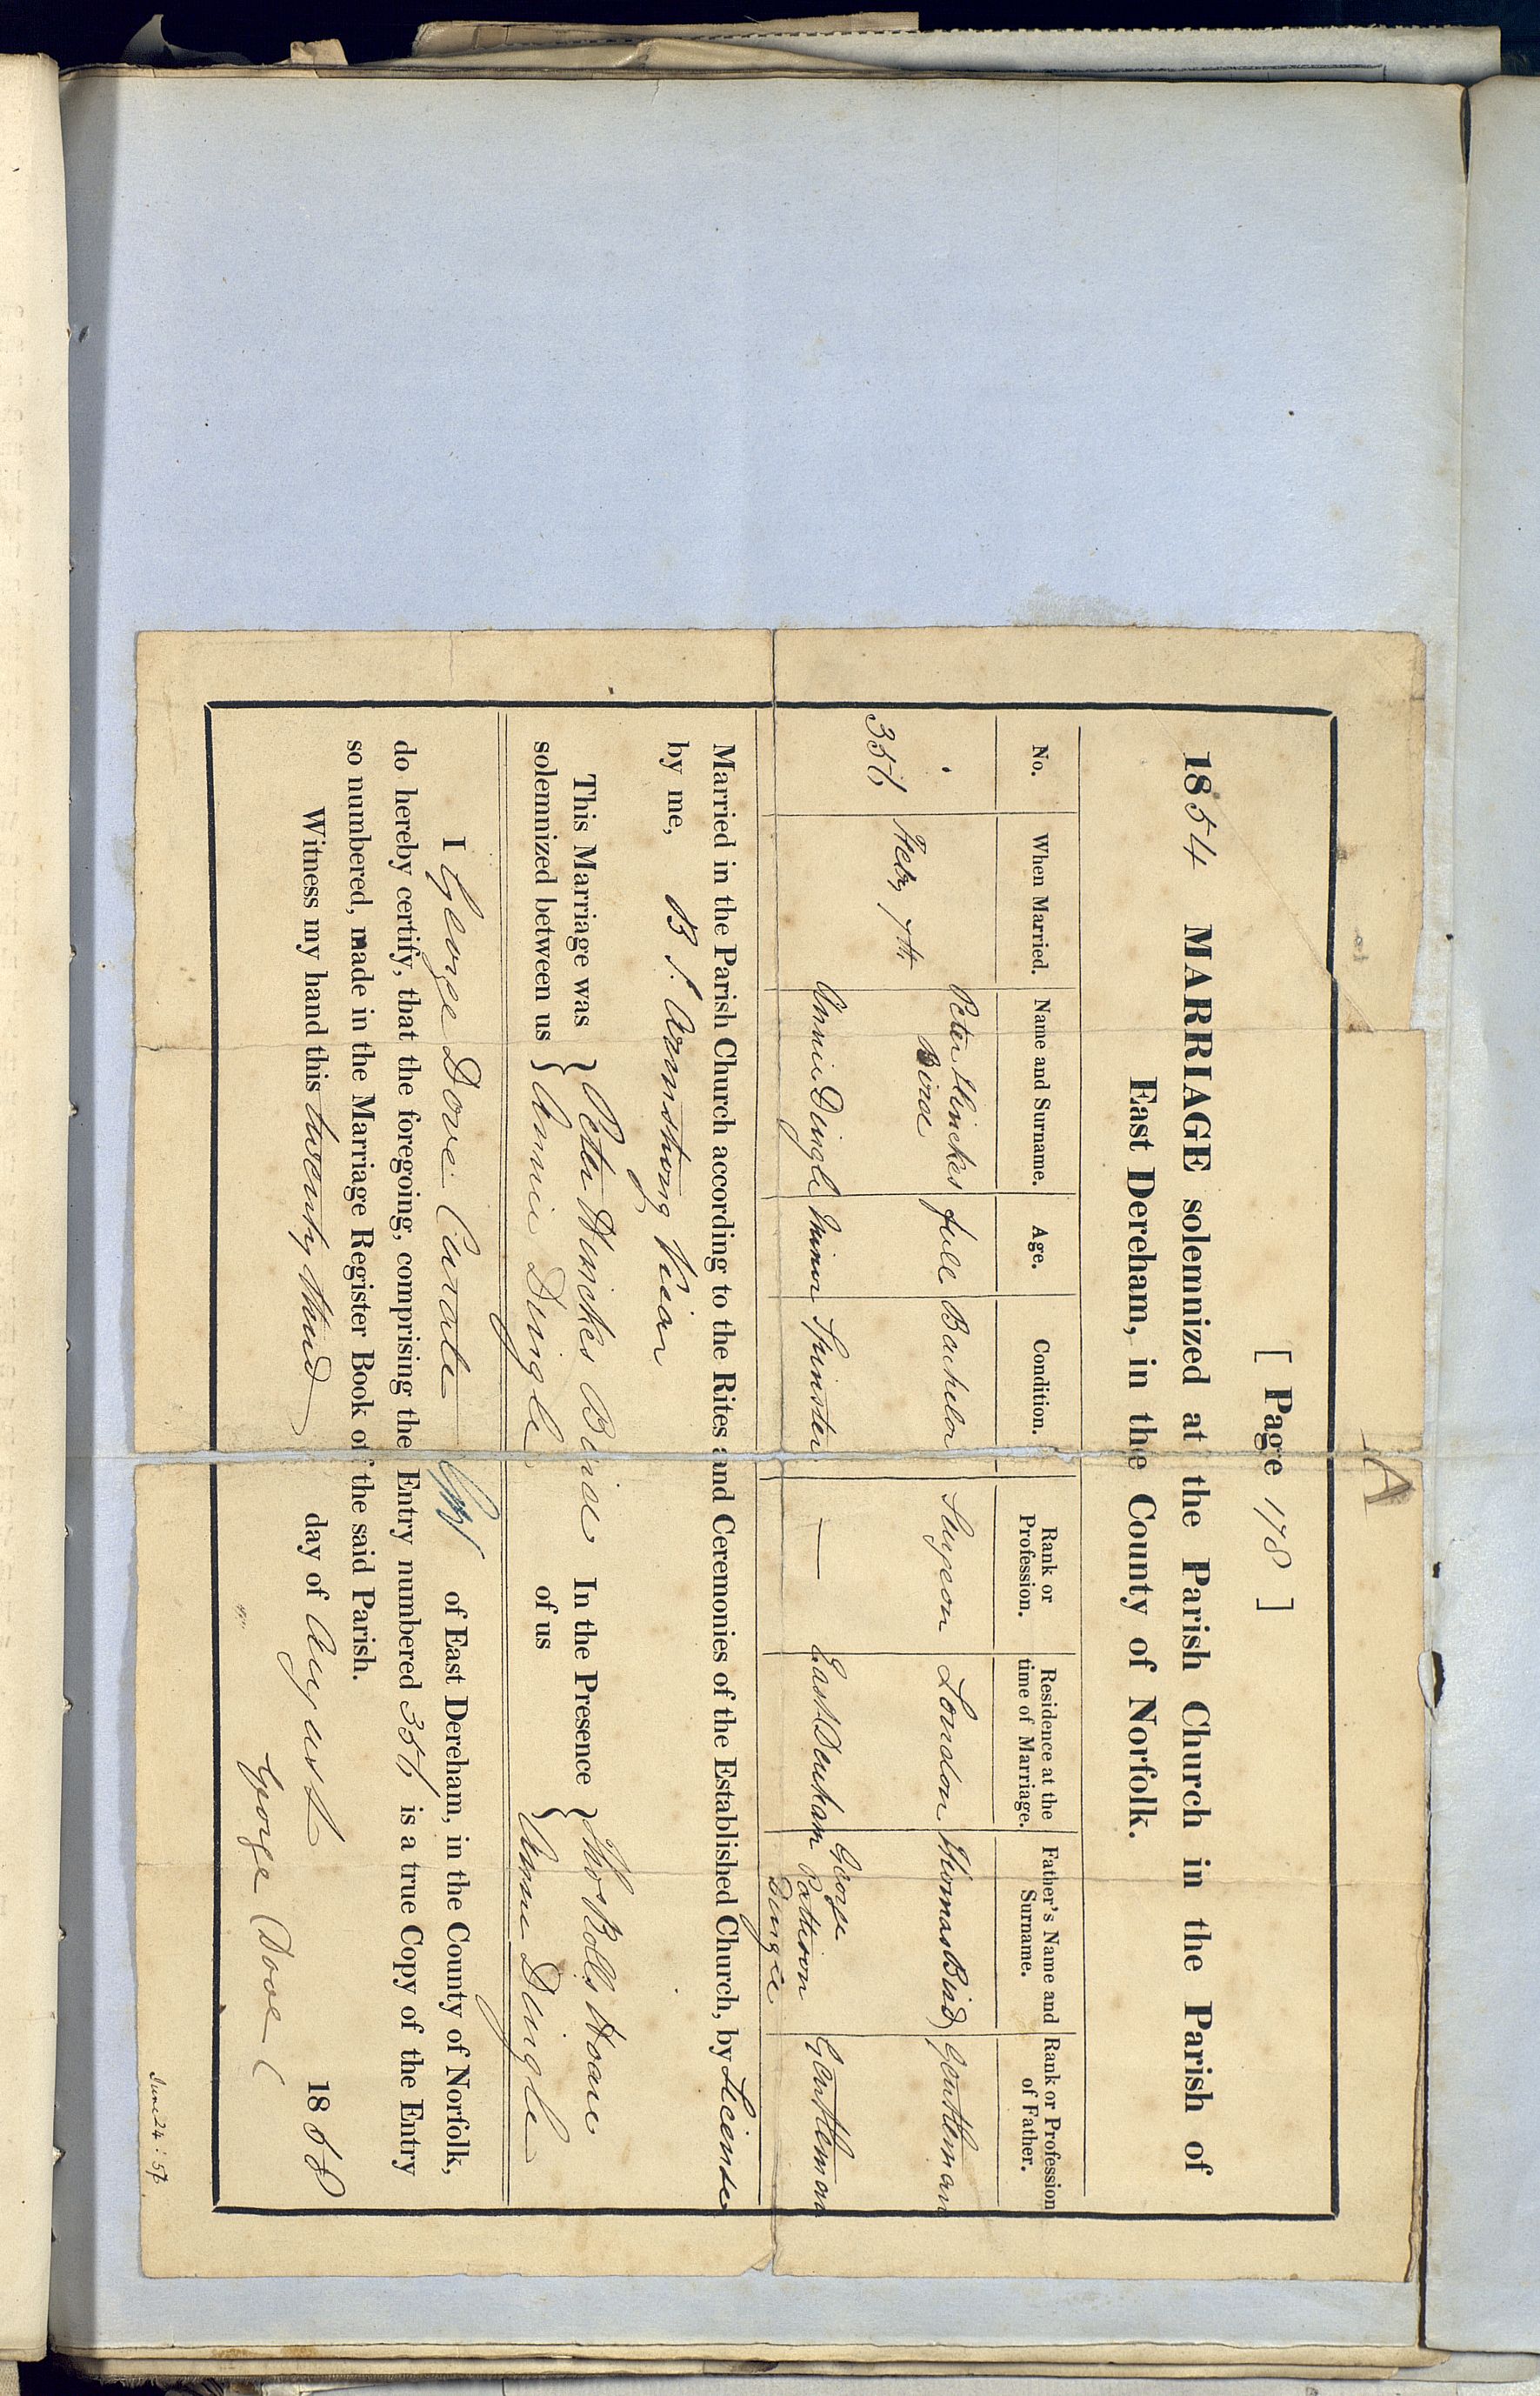 A
[ Page 178 ]
1854 MARRIAGE solemnized at the Parish Church in the Parish of
East Dereham, in the County of Norfolk.
No. When Married. Name and Surname. Age. Condition. Rank or Profession. Residence at the time of Marriage. Father's Name and Surname. Rank or Profession of Father.
356 Feby 7th Peter Hinckes Bird full Bachelor Surgeon London Thomas Bird Gentleman
Annie Dingle Minor Spinster — East Dereham George Pattison Dingle Gentleman
Married in the Parish Church according to the Rites and Ceremonies of the Established Church, by License
by me, B J. Armstrong Vicar
This Marriage was solemnized between us } Peter Hinckes Bird In the Presence of us } Thos Rolls Hoare
Annie Dingle Annie Dingle
I George Dove Curate of East Dereham, in the County of Norfolk,
do hereby certify, that the foregoing, comprising the Entry numbered 356 is a true Copy of the Entry
so numbered, made in the Marriage Register Book of the said Parish.
Witness my hand this twenty third day of August 1868
George Dove
June 24 : 57